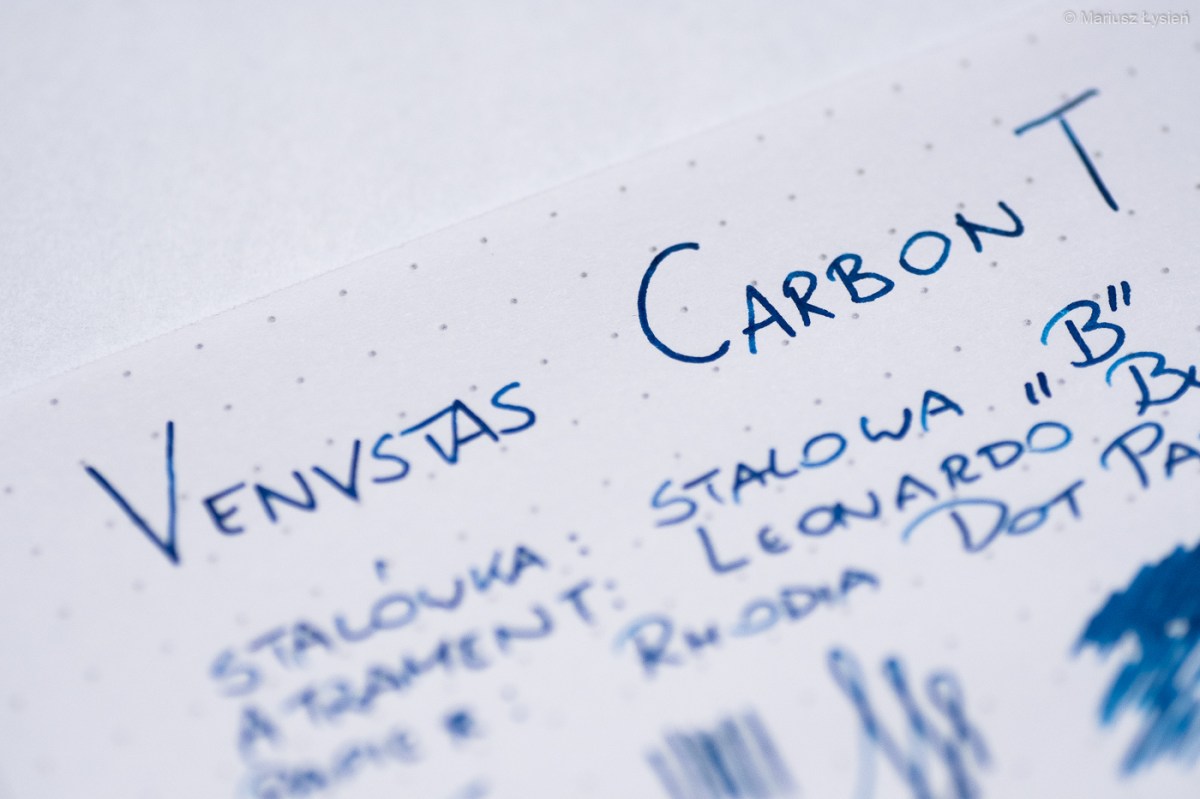 © Mariusz Łysień
VENVSTAS CARBON T
STALÓWKA: STALOWA „B"
ATRAMENT: LEONARDO
PAPIER: RHODIA DOT PA